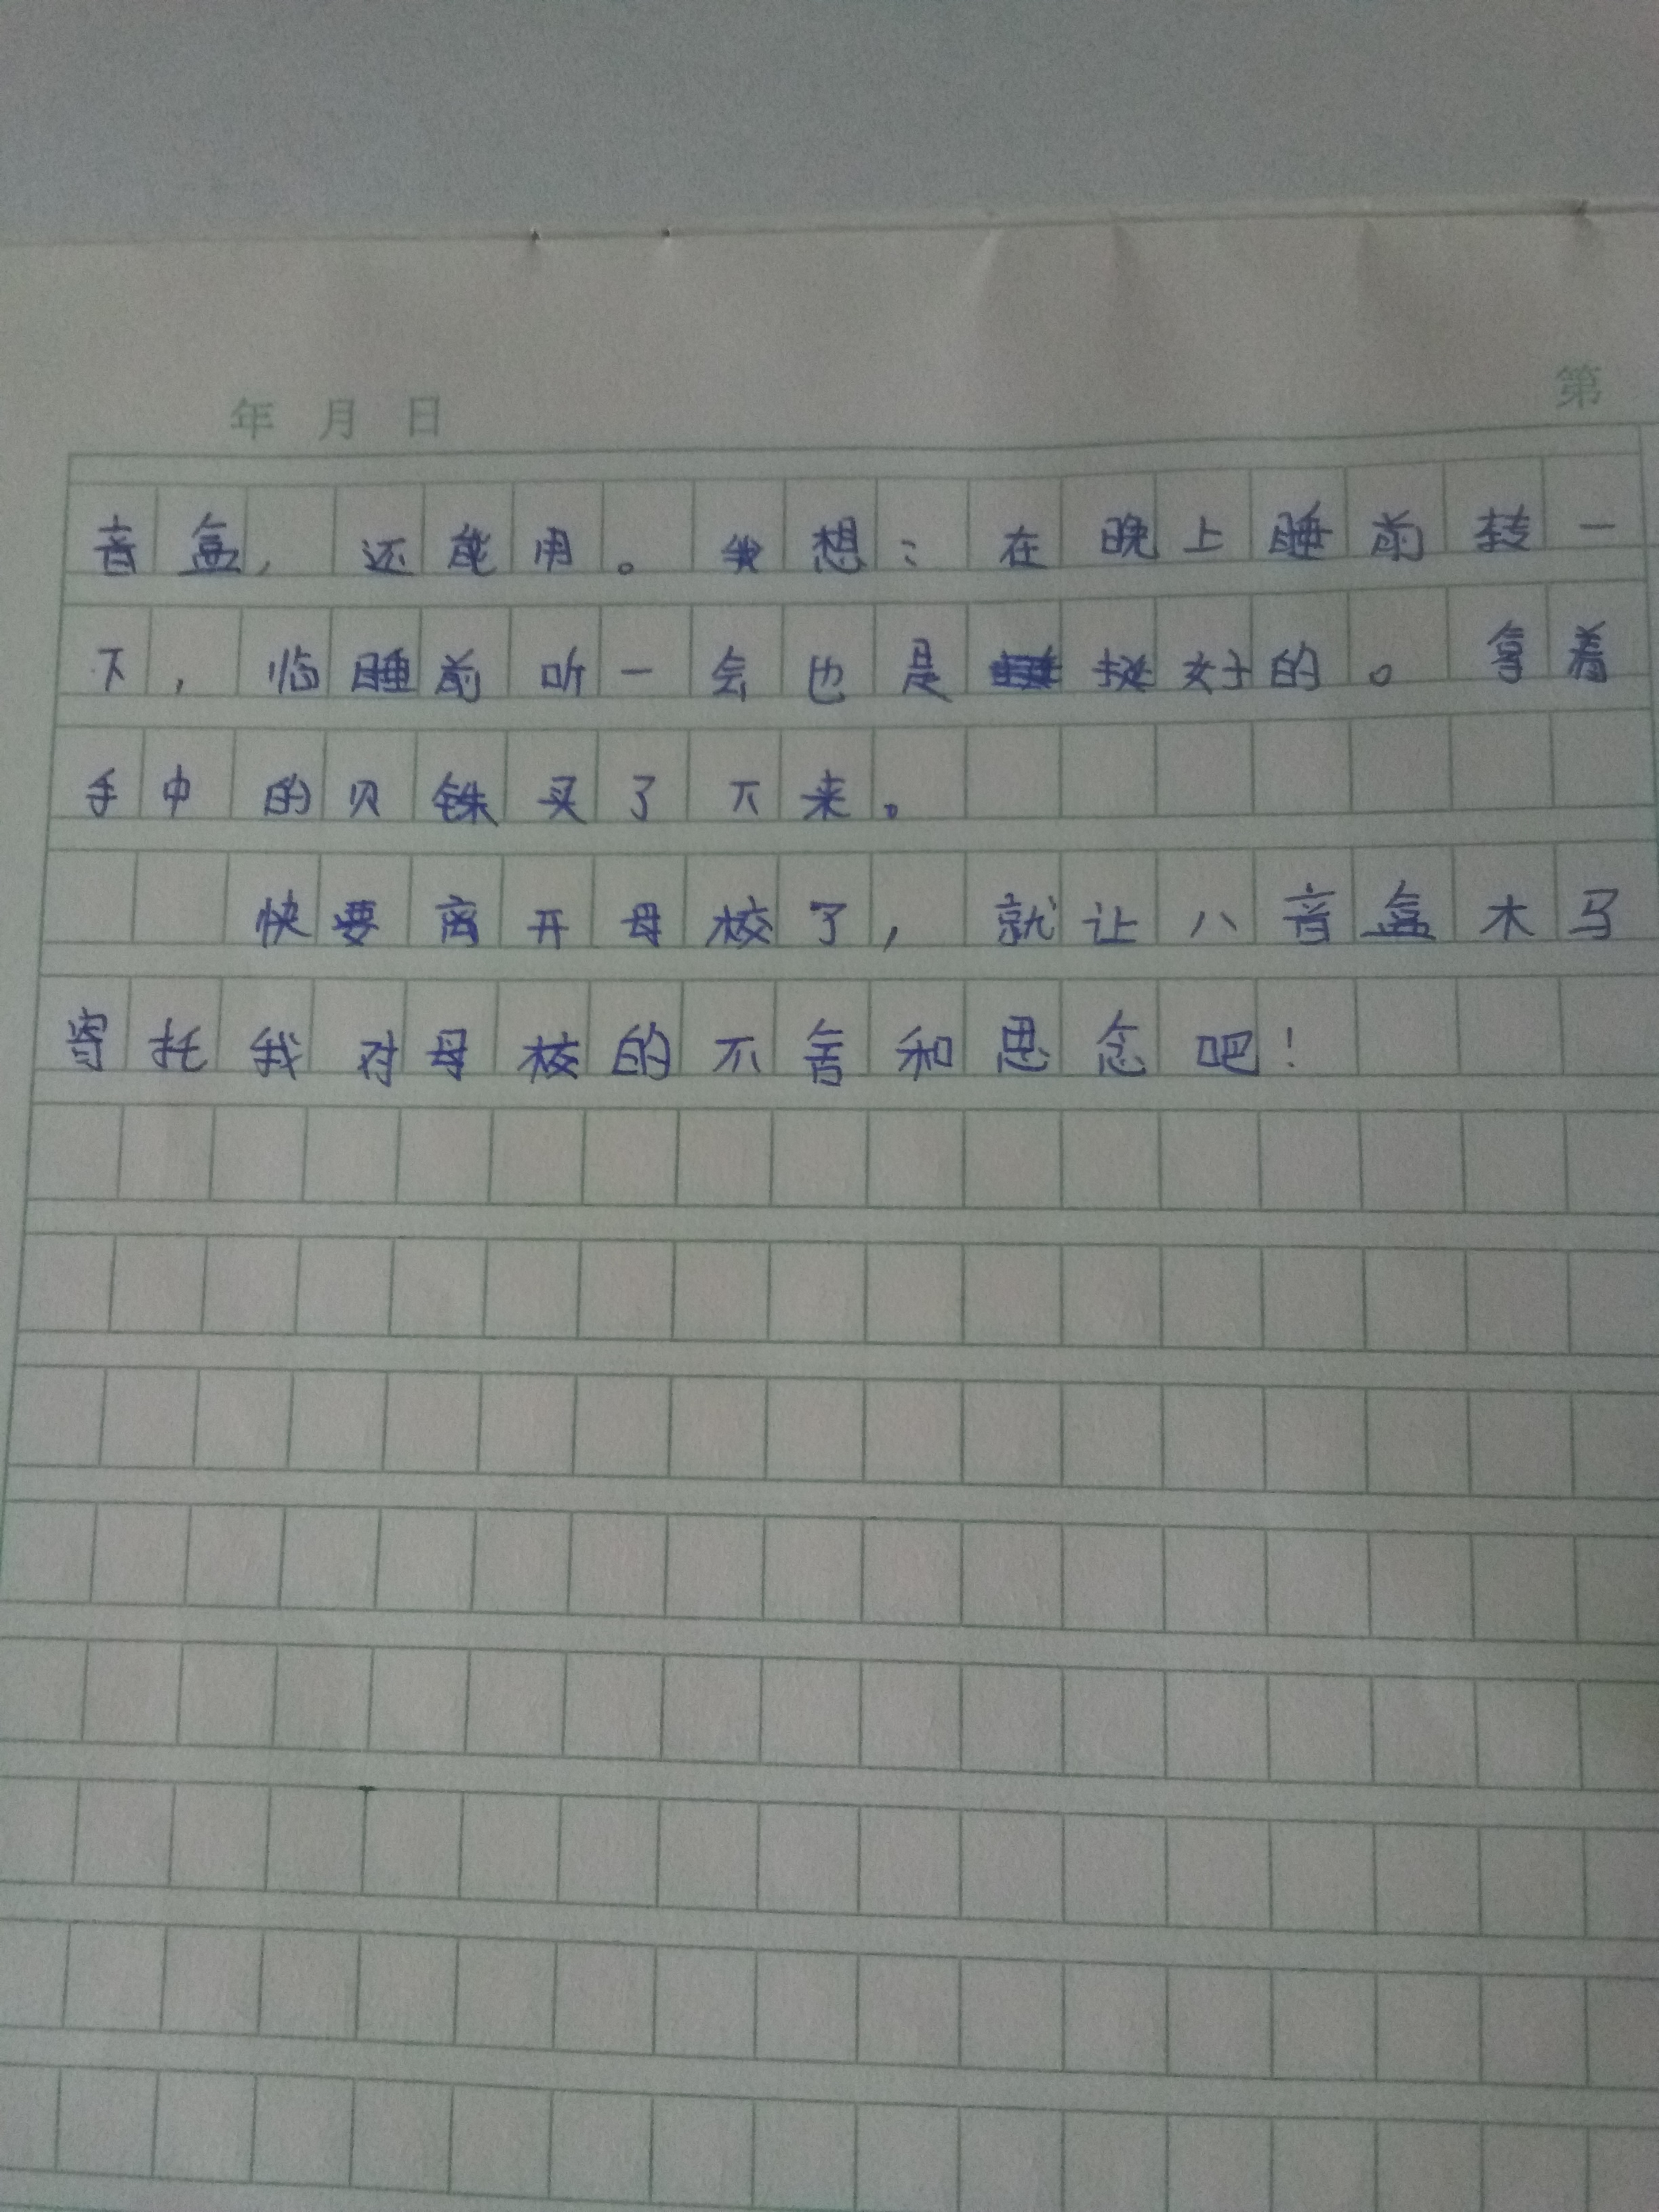 年 月 日 第
音盒，还能用。我想：在晚上睡前转一
下，临睡前听一会也是挺好的。拿着
手中的贝铢买了下来。
快要离开母校了，就让八音盒木马
寄托我对母校的不舍和思念吧！